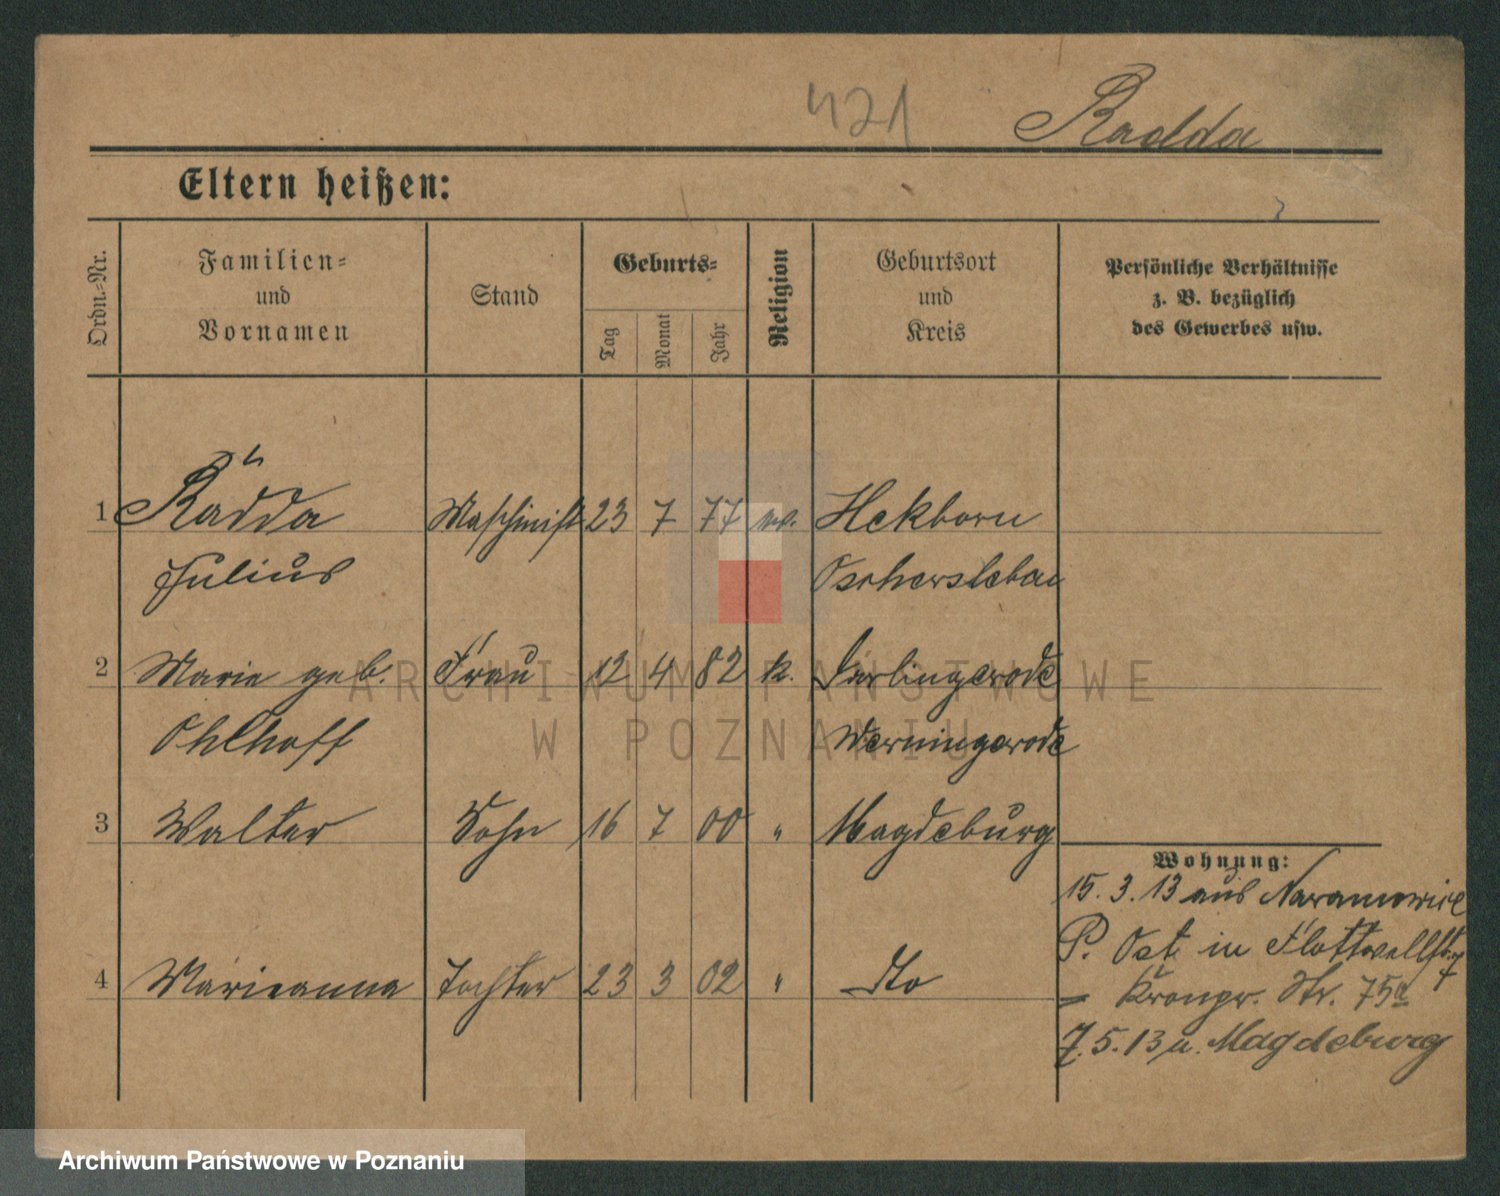 421 Radda
Eltern heißen:
Ordn.-Nr. Familien- und Vornamen Stand Geburts- Tag Monat Jahr Religion Geburtsort und Kreis Persönliche Verhältnisse z. B. bezüglich des Gewerbes usw.
1 Rädda Maschinist 23 7 77 ev. Hekborn
Julius Oschersleben
2 Marie geb. Frau 12 4 82 k. Darlingerode
Ohlhoff Werningerode
3 Walter Sohn 16 7 00 " Magdeburg
Wohnung:
15. 3. 13 aus Naramowice
P. Ost in Flottwellstr. 7
4 Marieanna Tochter 23 3 02 " dto
= Kronpr. Str. 75a
7. 5. 13 n. Magdeburg
ARCHIWUM PAŃSTWOWE
W POZNANIU
Archiwum Państwowe w Poznaniu